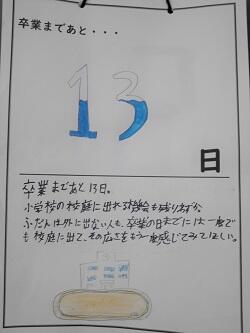 卒業まであと・・・
13
日
卒業まであと13日。
小学校の校庭に出れる機会も残りわずか
ふだんは外に出ない人も、卒業の日までには一度で
も校庭に出て、その広さをもう一度感じてみてほしい。